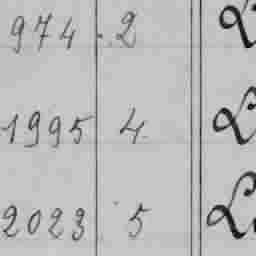 974 2
1995 4
2023 5